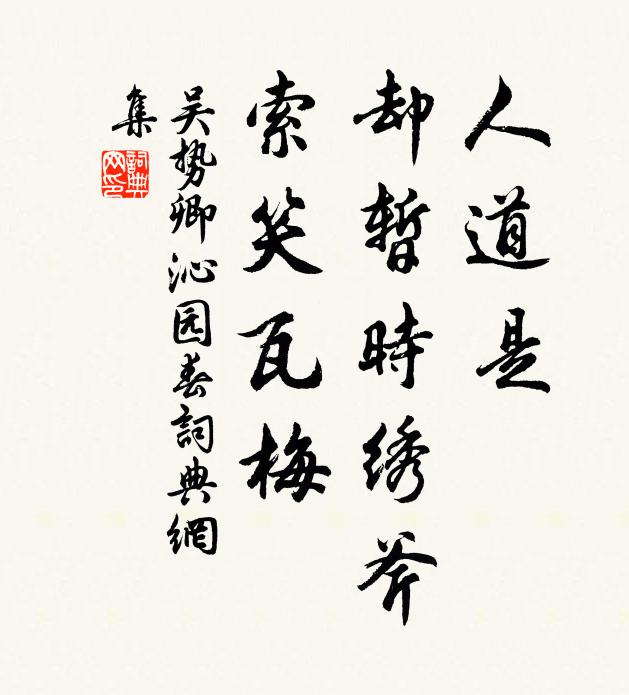 人道是
却暫時绣斧
索笑瓦梅
吴势卿沁园春詞典網
集
詞典网印